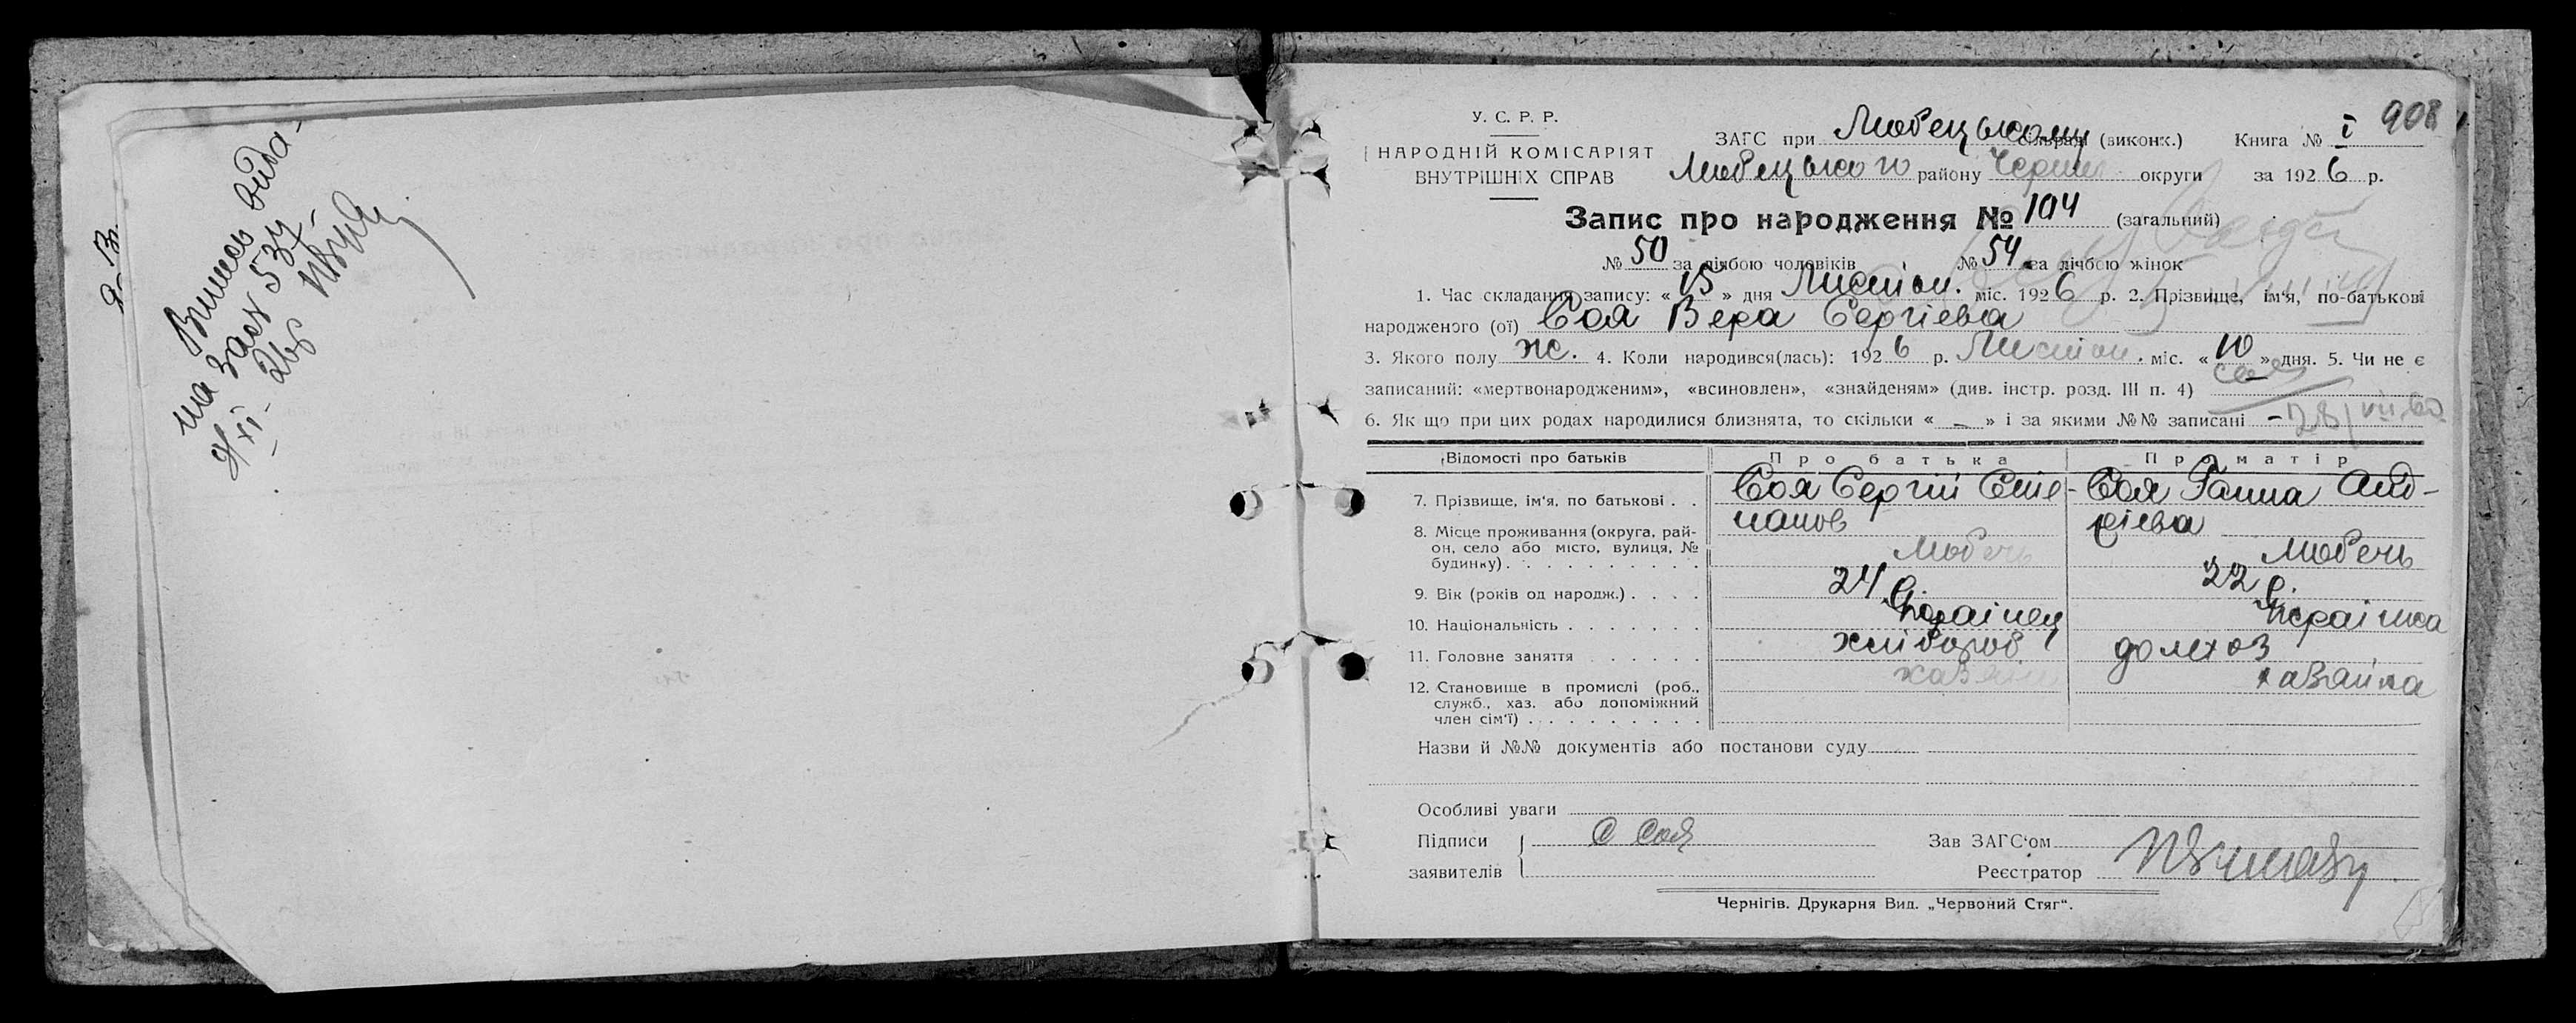 Випись вида-
на Заох 53у
4/XI-26р
908
У. С. Р. Р.
НАРОДНІЙ КОМІСАРІЯТ
ВНУТРІШНІХ СПРАВ
ЗАГС при Любецькому сільраді (виконк.) Книга № I
Любецького району Черниг округи за 1926 р.
Запис про народження № 104 (загальний)
№ 50 за лічбою чоловіків № 54 за лічбою жінок
1. Час складання запису: «15» дня Листоп. міс. 1926 р. 2. Прізвище, ім'я, по-батькові
народженого (ої) Соя Вера Сергієва
3. Якого полу жс. 4. Коли народився(лась): 1926 р. Листоп. міс. «10» дня. 5. Чи не є
записаний: «мертвонародженим», «всиновлен», «знайденям» (див. інстр. розд. III п. 4)
6. Як що при цих родах народилися близнята, то скільки « – » і за якими №№ записані –
Відомості про батьків Про батька Про матір
7. Прізвище, ім'я, по батькові . . Соя Сергій Сте- Соя Ганна Анд-
панов рієва
8. Місце проживання (округа, рай-
он, село або місто, вулиця, №
будинку) . . . . . . . . . Любечь Любечь
9. Вік (років од народж.) . . . . 24 р. 22 р.
10. Національність . . . . . . . Українец Україінка
11. Головне заняття . . . . . . хлібороб домхоз
12. Становище в промислі (роб., хазяін хазяйка
служб., хаз. або допоміжний
член сім'ї) . . . . . . . . .
Назви й №№ документів або постанови суду
Особливі уваги
Підписи С Соя Зав ЗАГС'ом
заявителів Реєстратор
Чернігів. Друкарня Вид. „Червоний Стяг".